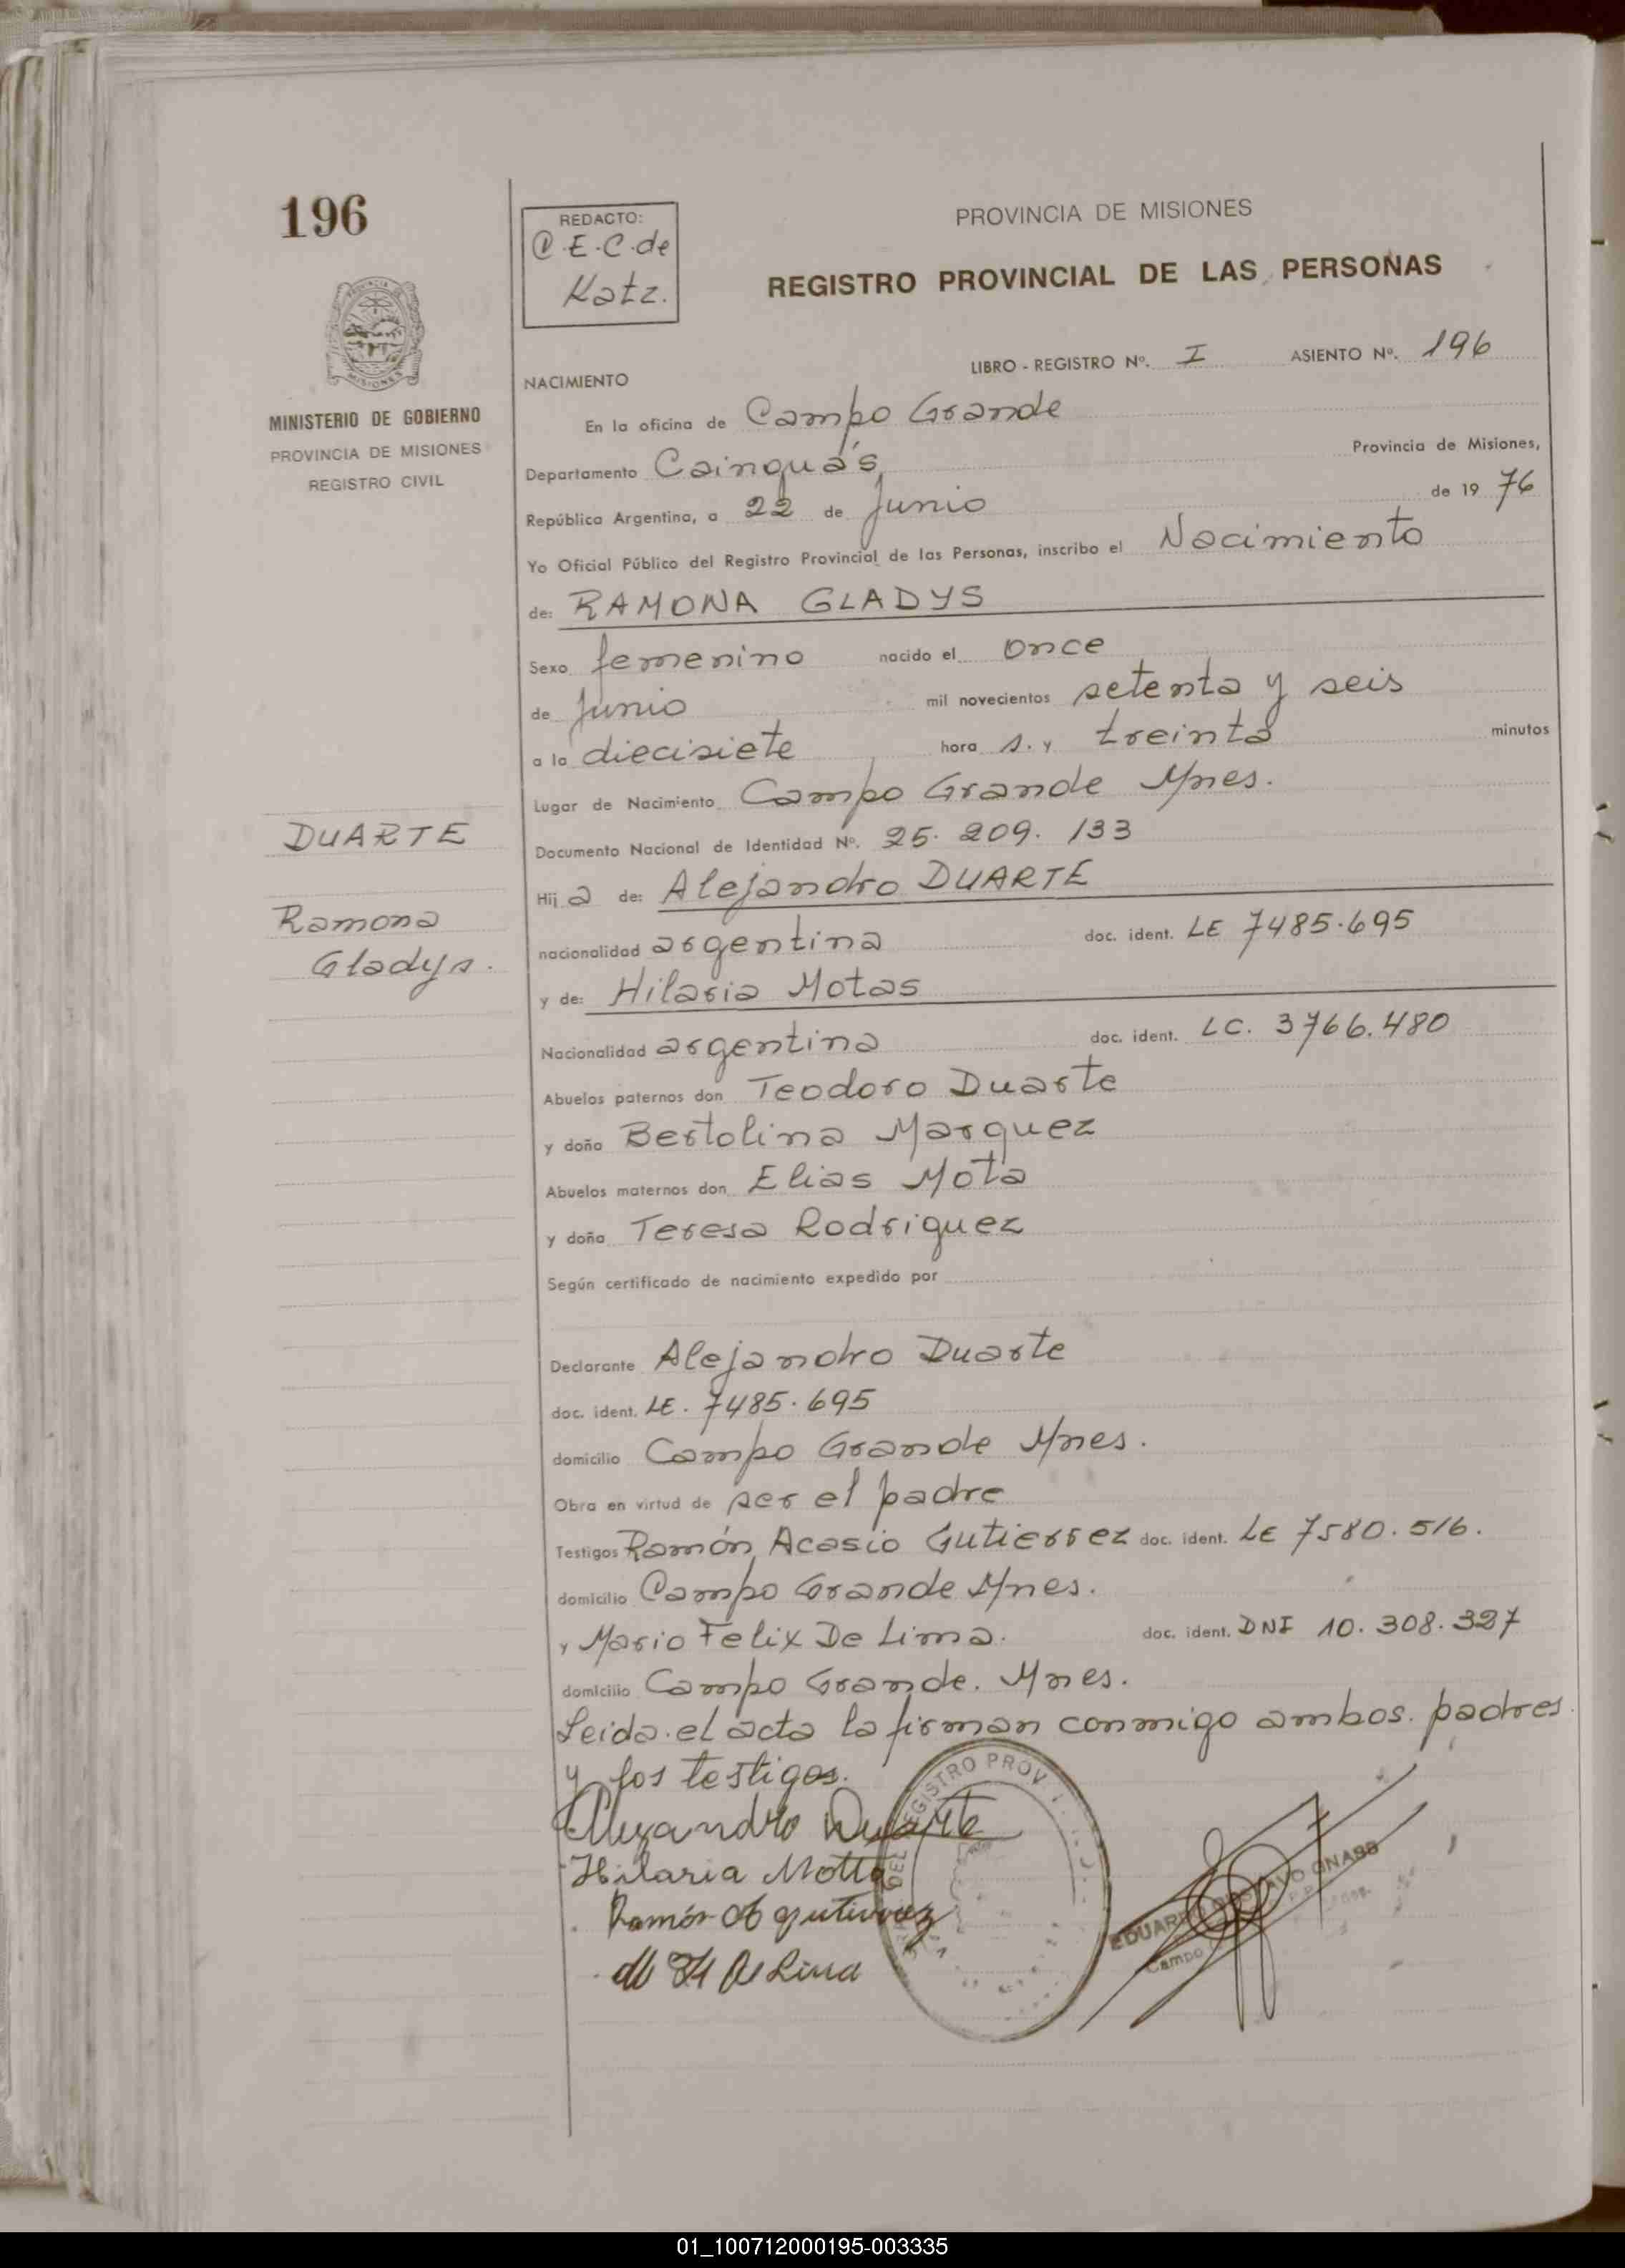 196
PROVINCIA DE MISIONES
MINISTERIO DE GOBIERNO
PROVINCIA DE MISIONES
REGISTRO CIVIL
REDACTO:
C.E.C.de
Katz.
PROVINCIA DE MISIONES
REGISTRO PROVINCIAL DE LAS PERSONAS
LIBRO - REGISTRO Nº. I ASIENTO Nº. 196
NACIMIENTO
En la oficina de Campo Grande
Departamento Cainguás Provincia de Misiones,
República Argentina, a 22 de Junio de 19 76
Yo Oficial Público del Registro Provincial de las Personas, inscribo el Nacimiento
de: RAMONA GLADYS
Sexo femenino nacido el once
de Junio mil novecientos setenta y seis
a la diecisiete hora s. y treinta minutos
Lugar de Nacimiento Campo Grande Mnes.
DUARTE
Documento Nacional de Identidad Nº. 25.209.133
Hij a de: Alejandro DUARTE
Ramona
Gladys.
nacionalidad argentina doc. ident. LE 7485.695
y de: Hilaria Motas
Nacionalidad argentina doc. ident. LC. 3766.480
Abuelos paternos don Teodoro Duarte
y doña Bertolina Marquez
Abuelos maternos don Elias Mota
y doña Teresa Rodriguez
Según certificado de nacimiento expedido por
Declarante Alejandro Duarte
doc. ident. LE. 7485.695
domicilio Campo Grande Mnes.
Obra en virtud de ser el padre
Testigos Ramón Acasio Gutierrez doc. ident. LE 7580.516.
domicilio Campo Grande Mnes.
y Mario Felix De Lima. doc. ident. DNI 10.308.327
domicilio Campo Grande. Mnes.
Leida el acta la firman conmigo ambos padres
y los testigos.
Alejandro Duarte
Hilaria Motta
Ramón Gutierrez
De Lima
DEL REGISTRO PROV
EDUARDO GUSTAVO GNASS
Campo
01_100712000195-003335